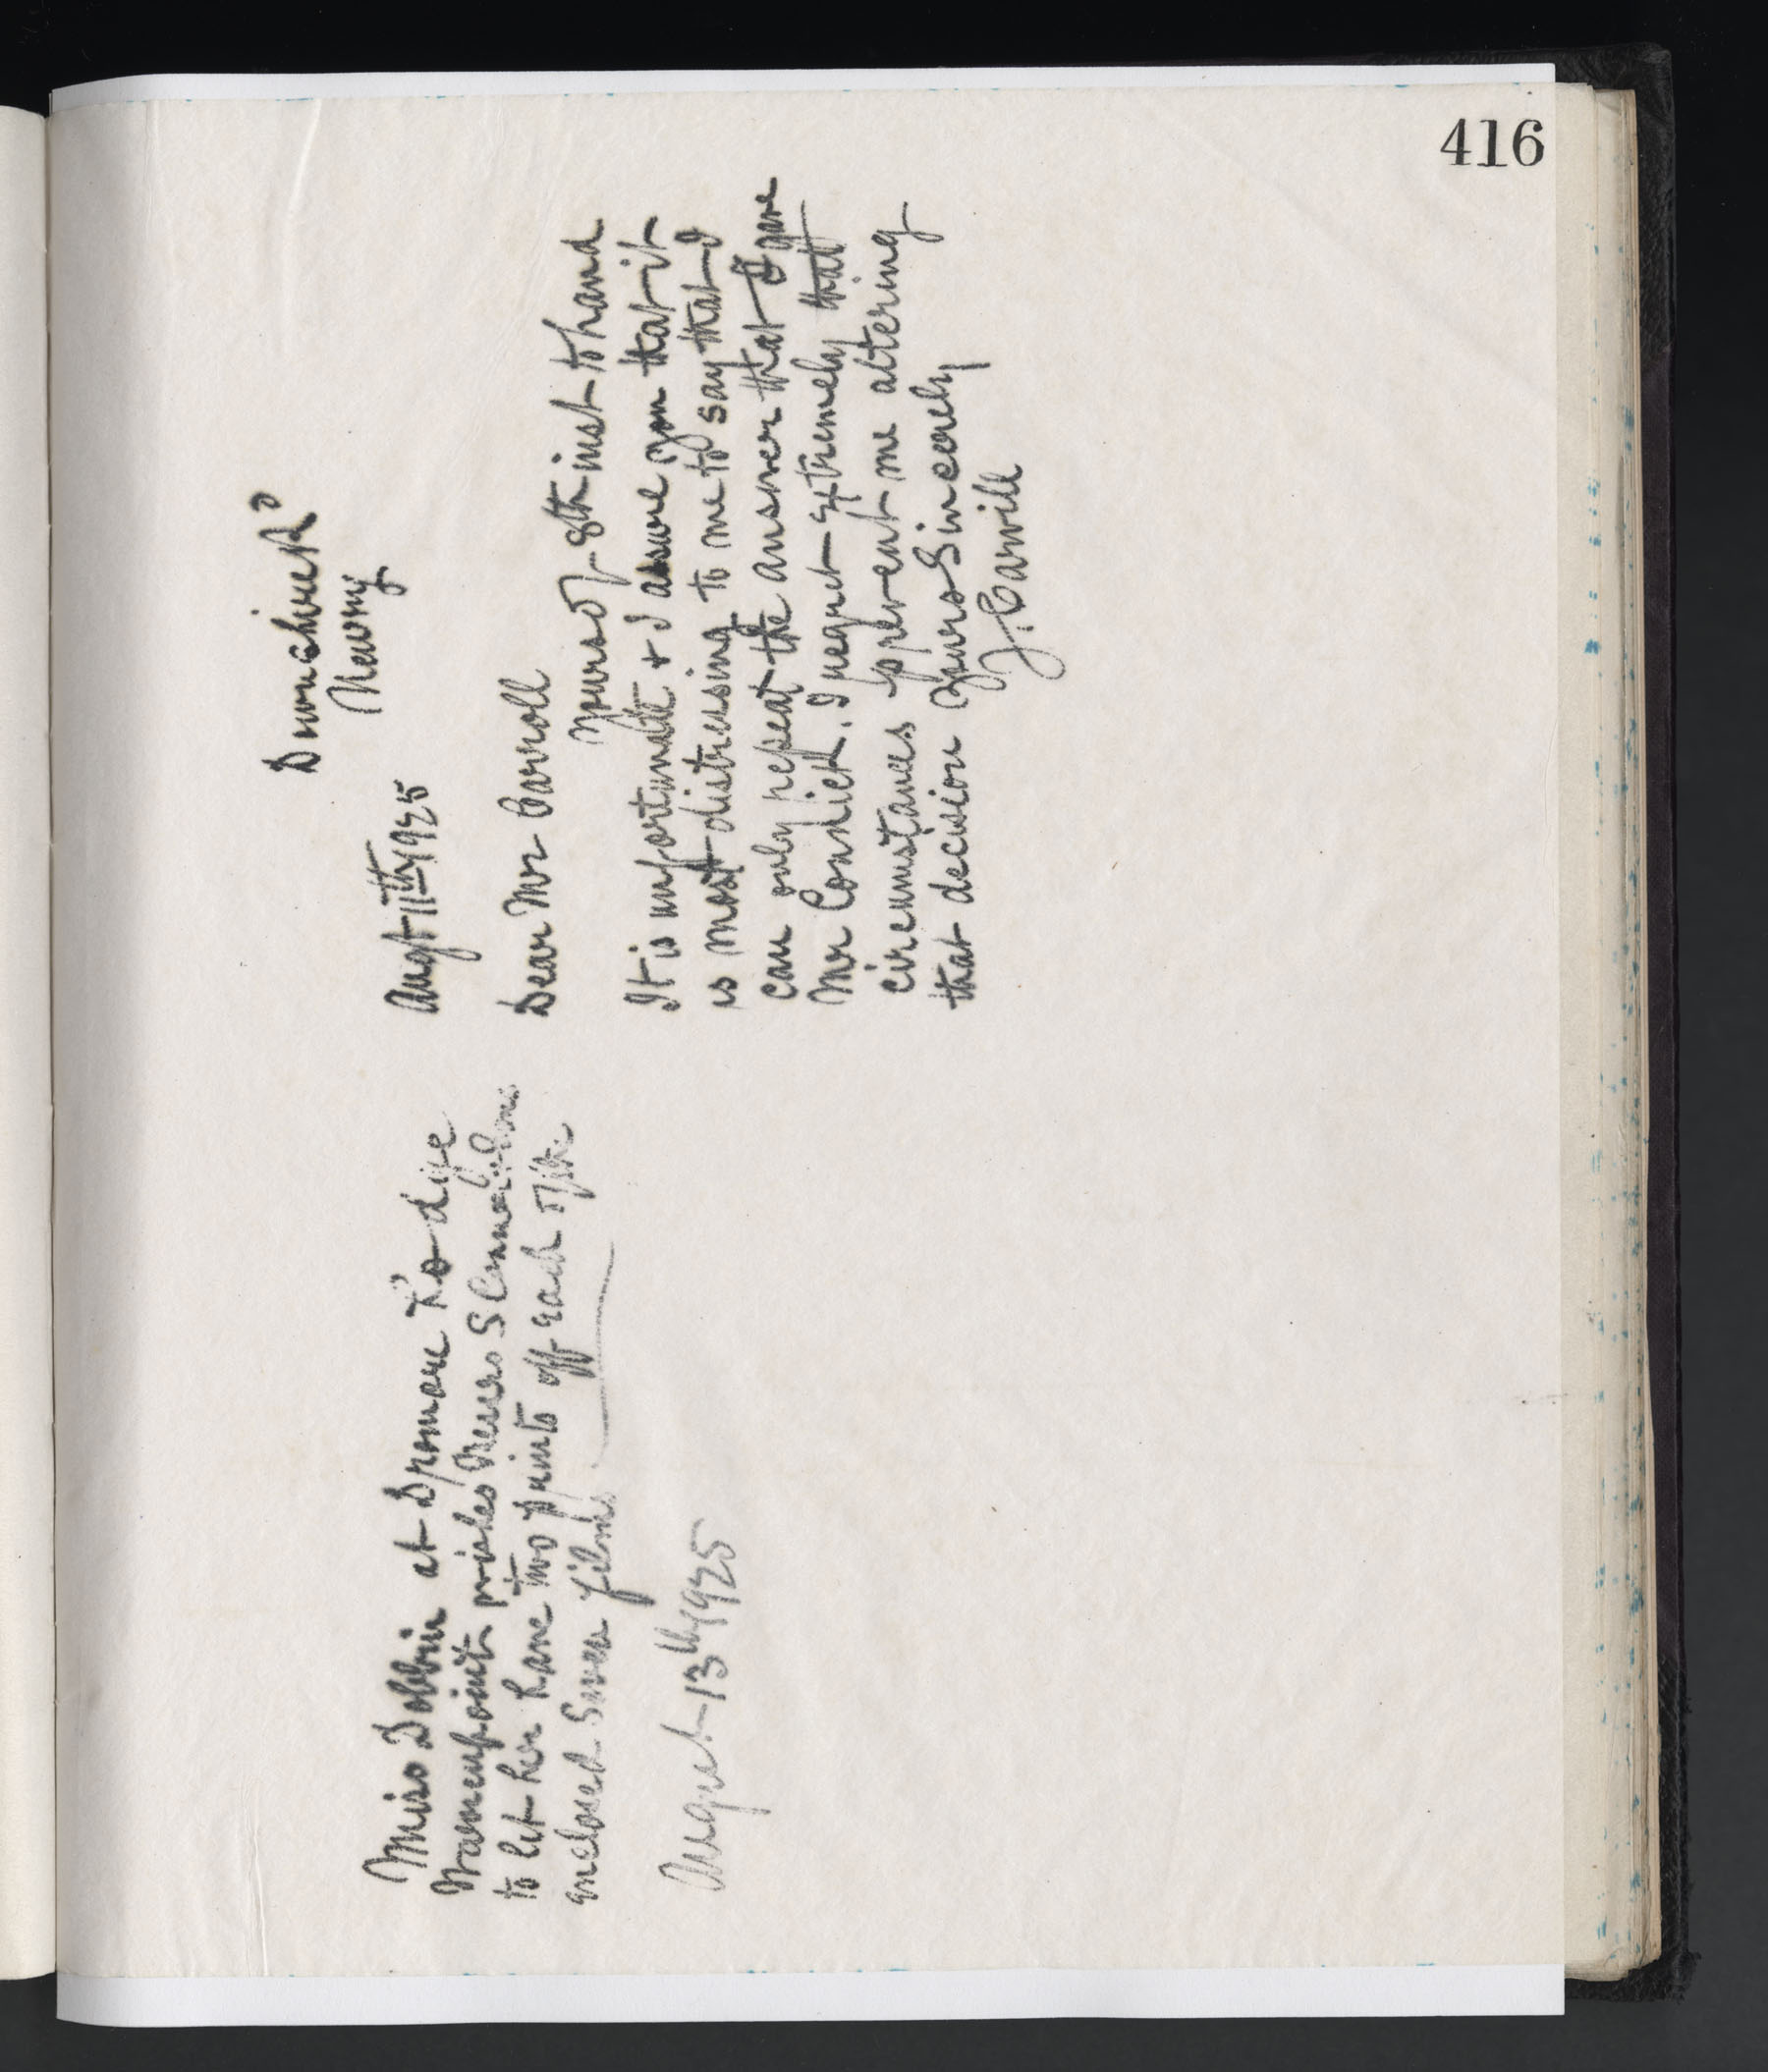 416
Miss Dobbin at Dromore Rd
Warrenpoint wishes Messrs
to let her have two prints off each of the
enclosed Seven films.
August 13th 1925
Newry
Augt 11th 1925
Dear Mr Carroll
Yours of 8th inst to hand
It is unfortunate & I assure you that it
is most distressing to me to say that I
can only repeat the answer that I gave
Mr Connick. I regret extremely that
circumstances prevent me altering
that decision Yours Sincerely
J. Carvill